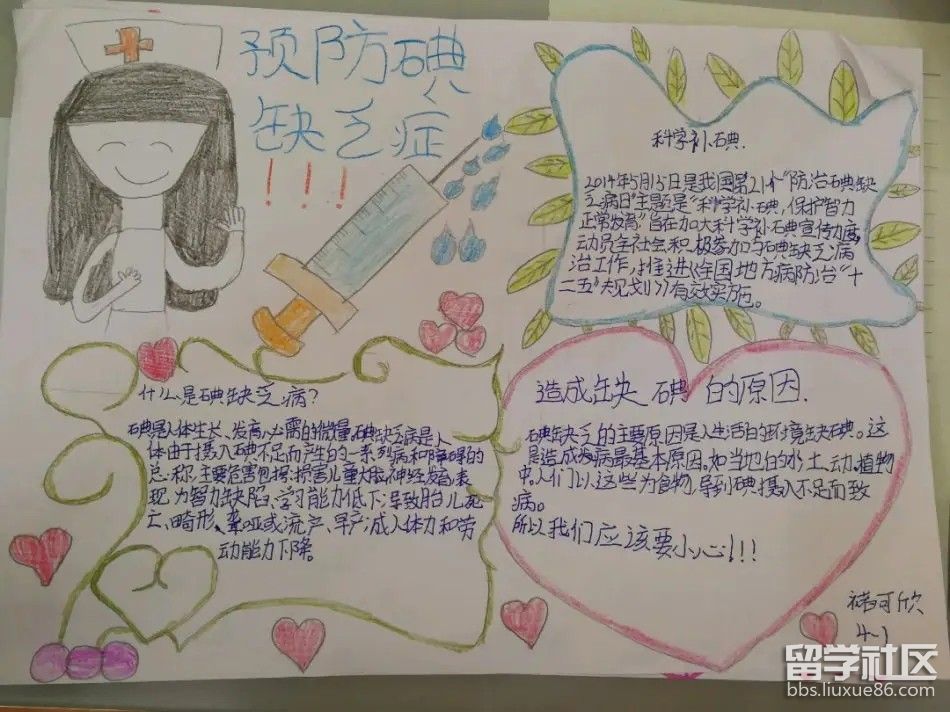 预防碘
缺乏症
!!!
科学补碘.
2014年5月15日是我国第21个"防治碘缺
乏病日"主题是"科学补碘,保护智力
正常发育"旨在加大科学补碘宣传力度,
动员全社会积极参加与碘缺乏病
治工作,推进《全国地方病防治"十
二五"规划》有效实施。
什么是碘缺乏病?
碘是人体生长、发育必需的微量。碘缺乏病是人
体由于摄入碘不足而产生的一系列病和障碍的
总称.主要危害包括:损害儿童大脑神经发育,表
现为智力缺陷、学习能力低下;导致胎儿死
亡、畸形、聋哑或流产、早产;成人体力和劳
动能力下降。
造成缺碘的原因.
碘缺乏的主要原因是人生活的环境缺碘。这
是造成疾病最基本原因。如当地的水土、动、植物
中,人们以这些为食物,导到碘摄入不足而致
病。
所以我们应该要小心!!!
褚可欣
4-1
留学社区
bbs.liuxue86.com